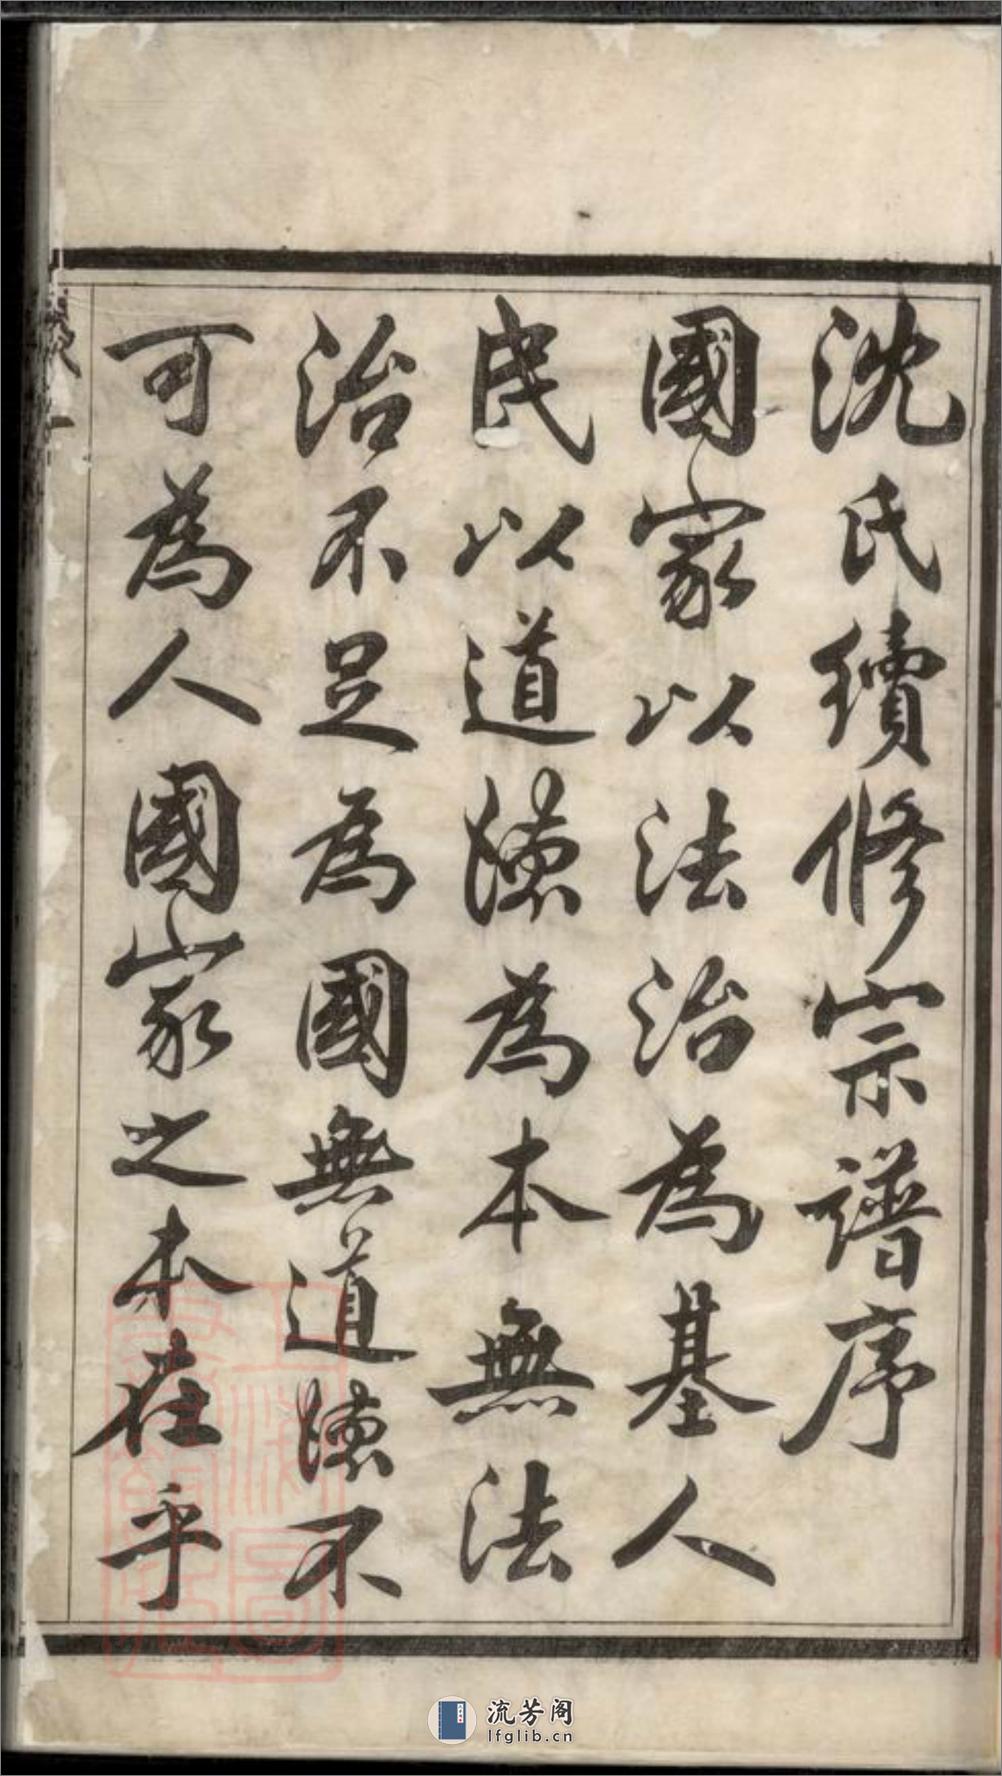 沈氏續修宗譜序
國家以法治為基人
民以道德為本無法
治不足為國無道德不
可為人國家之本在乎
流芳阁
lfglib.cn